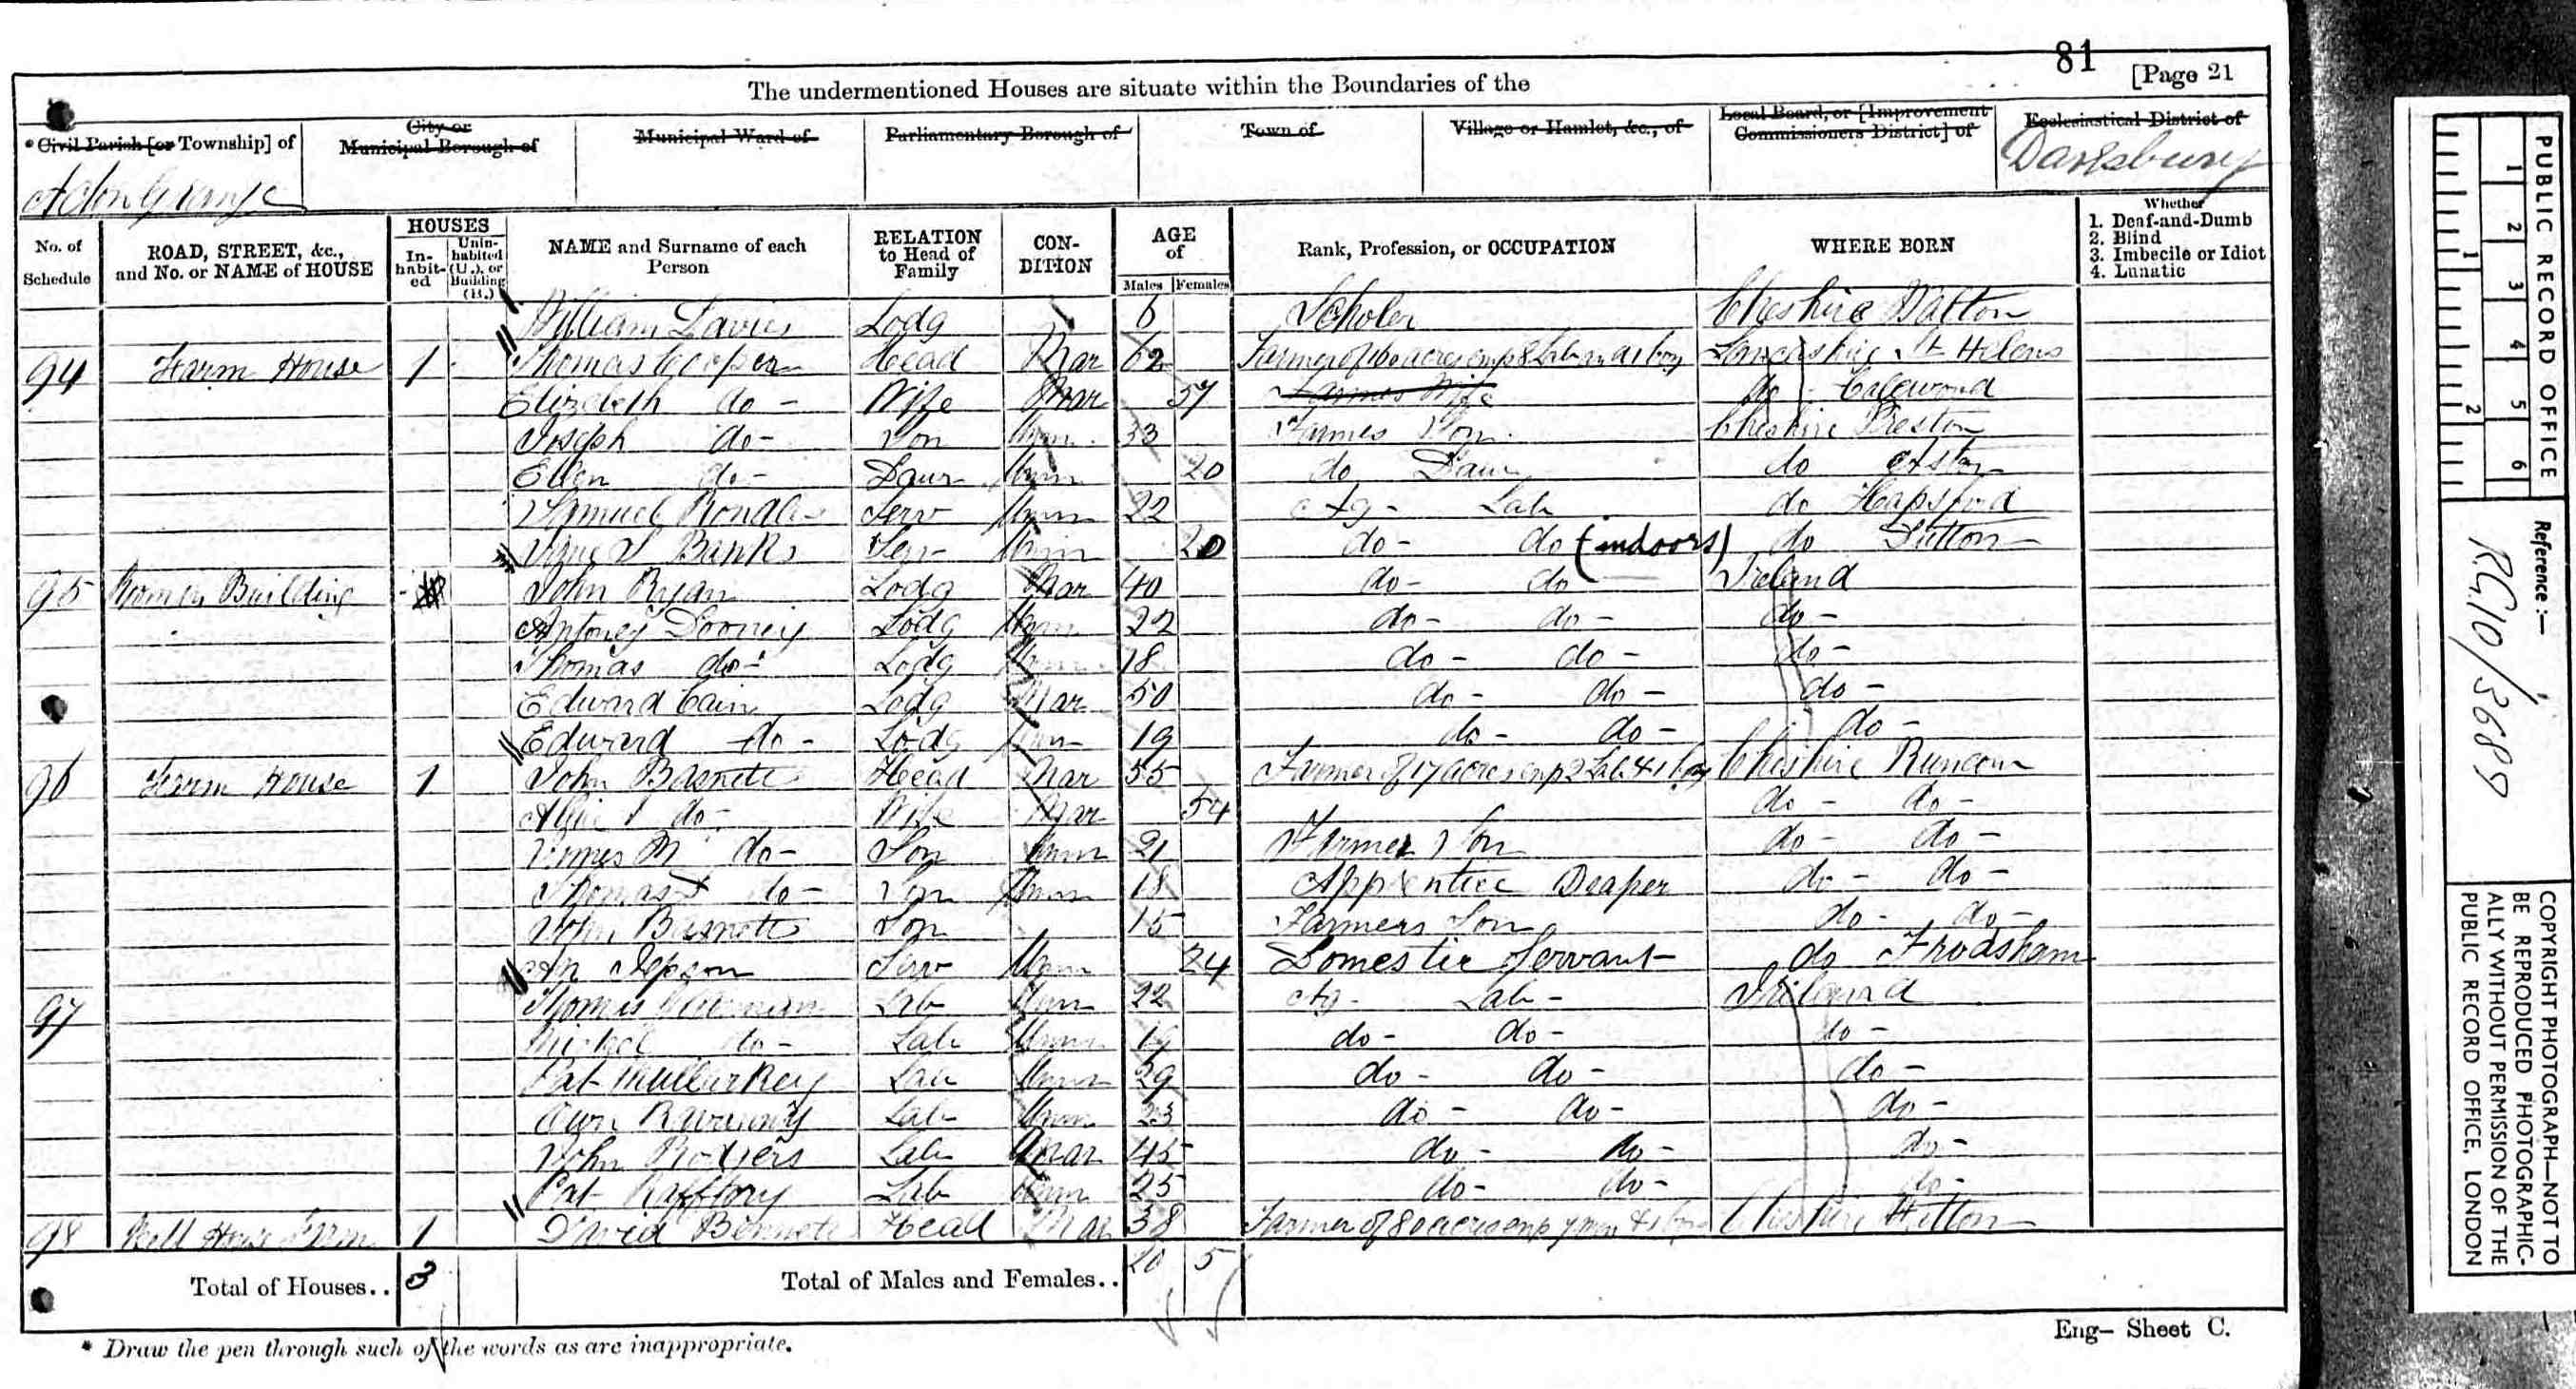 81
[Page 21
The undermentioned Houses are situate within the Boundaries of the
*Civil Parish [or Township] of
City or Municipal Borough of
Municipal Ward of
Parliamentary Borough of
Town of
Village or Hamlet, &c., of
Local Board, or [Improvement Commissioners District] of
Ecclesiastical District of
Acton Grange
Daresbury
No. of Schedule
ROAD, STREET, &c., and No. or NAME of HOUSE
HOUSES
Inhabited
Uninhabited (U.), or Building (B.)
NAME and Surname of each Person
RELATION to Head of Family
CONDITION
AGE of
Males
Females
Rank, Profession, or OCCUPATION
WHERE BORN
Whether
1. Deaf-and-Dumb
2. Blind
3. Imbecile or Idiot
4. Lunatic
William Davies Lodg 6 Scholer Cheshire Walton
94 Farm House 1 Thomas Cooper Head Mar 62 Farmer of 160 acres emp 8 Lab Lancashire St Helens
Elizabeth do - Wife Mar 57 Farmers Wife do
Joseph do - Son Unm 33 Farmers Son Cheshire Preston
Ellen do - Daur Unm 20 do Daur do Aston
Samuel Serv Unm 22 Ag - Lab do Hapsford
Banks Serv Unm 20 do - do (indoors) do Sutton
95 Building John Ryan Lodg Mar 40 do - do Ireland
Antoney Dooney Lodg Unm 22 do - do - do -
Thomas do - Lodg Unm 18 do - do - do -
Edward Cain Lodg Mar 50 do - do - do -
Edward do - Lodg Unm 19 do - do - do -
96 Farm House 1 John Basnett Head Mar 55 Farmer of 17 acres emp 2 Lab & 1 boy Cheshire Runcorn
do - Wife Mar 54 do - do -
James M do - Son Unm 21 Farmer Son do - do -
Thomas do - Son Unm 18 Apprentice Draper do - do -
John Basnett Son 15 Farmers Son do - do -
An Jepson Serv Unm 24 Domestic Servant do Frodsham
97 Thomas Lab Unm 22 Ag - Lab - Ireland
Michel do - Lab Unm 19 do - do - do -
Pat Mullarkey Lab Unm 29 do - do - do -
Lab Unm 23 do - do - do -
John Rodgers Lab Mar 45 do - do - do -
Pat Raftory Lab Unm 25 do - do - do -
98 House Farm 1 David Bennett Head Mar 38 Farmer of 80 acres emp men & 1 boy Cheshire
Total of Houses.. 3
Total of Males and Females.. 20 5
* Draw the pen through such of the words as are inappropriate.
Eng- Sheet C.
PUBLIC RECORD OFFICE
1 2 3 4 5 6
1 2
Reference:-
R.G. 10/3689
COPYRIGHT PHOTOGRAPH—NOT TO
BE REPRODUCED PHOTOGRAPHIC-
ALLY WITHOUT PERMISSION OF THE
PUBLIC RECORD OFFICE, LONDON